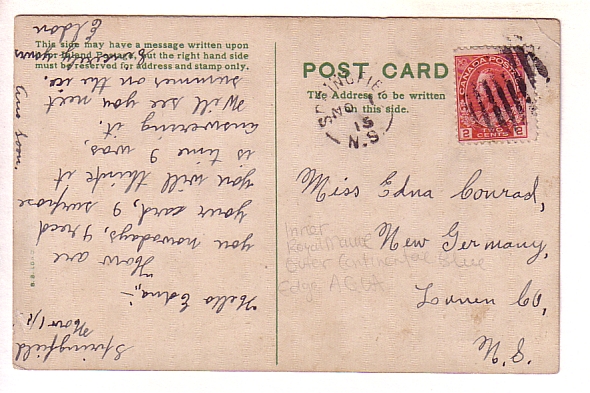 This side may have a message written upon
for Inland Postage, but the right hand side
must be reserved for address and stamp only.
POST CARD
The Address to be written
on this side.
SPRINGFIELD
NO 1
15
N.S
CANADA POSTAGE
2 TWO CENTS 2
Miss Edna Conrad,
New Germany,
Lunen Co,
N.S.
Inner
Royal
Outer Continental Blue
Edge
Springfield
Nov 1/15
"Hello Edna,"
How are
you nowadays, I recd
your card, I surpose
you will think it
is time I was,
answering it.
Will see you next
summer on the ice.
Sincerely yours
Eldon
Ans soon.